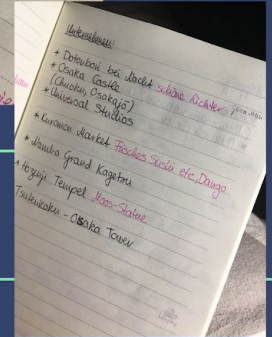 Unternehmen:
* Dotonbori bei Nacht schöne Lichter
* Osaka Castle
(Chuoku, Osakajō)
* Universal Studios
* Kuromon Market Frisches Sushi etc, Dango
* Namba Grand Kagetsu
* Hozenji Tempel Moos-Statue
Tsutenkaku - Osaka Tower